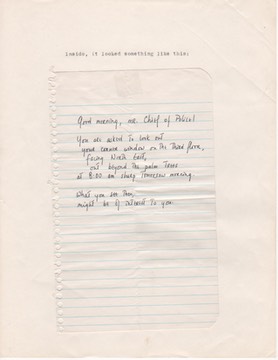 inside, it looked something like this:
Good morning, mr. Chief of Police!
You are asked to look out
your corner window on the Third floor,
facing North East,
out beyond the palm trees
at 8:00 am sharp tomorrow morning.
What you see then,
might be of interest to you.